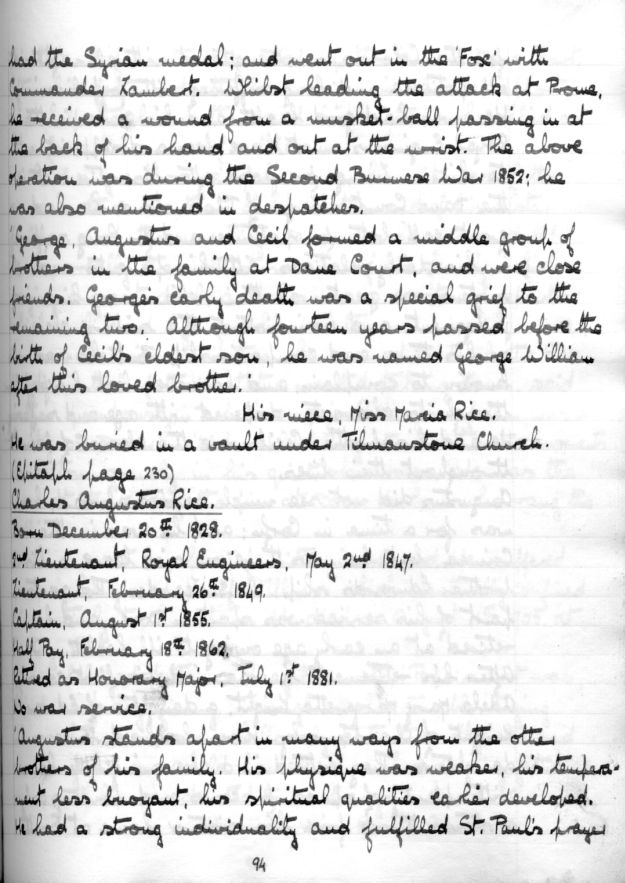 had the Syrian medal; and went out in the 'Fox' with
Commander Lambert. Whilst leading the attack at Prome,
he received a wound from a musket-ball passing in at
the back of his hand and out at the wrist. The above
operation was during the Second Burmese War 1852; he
was also mentioned in despatches.
'George, Augustus and Cecil formed a middle group of
brothers in the family at Dane Court, and were close
friends. George's early death was a special grief to the
remaining two. Although fourteen years passed before the
birth of Cecil's eldest son, he was named George William
after this loved brother.'
His niece, Miss Marcia Rice.
He was buried in a vault under Tilmanstone Church.
(Epitaph page 230)
Charles Augustus Rice.
Born December 20th 1828.
2nd Lieutenant, Royal Engineers, May 2nd 1847.
Lieutenant, February 26th 1849.
Captain, August 1st 1855.
Half Pay, February 18th 1862.
Retired as Honorary Major, July 1st 1881.
No war service.
'Augustus stands apart in many ways from the other
brothers of his family. His physique was weaker, his tempera-
ment less buoyant, his spiritual qualities earlier developed.
He had a strong individuality and fulfilled St. Paul's prayer
94